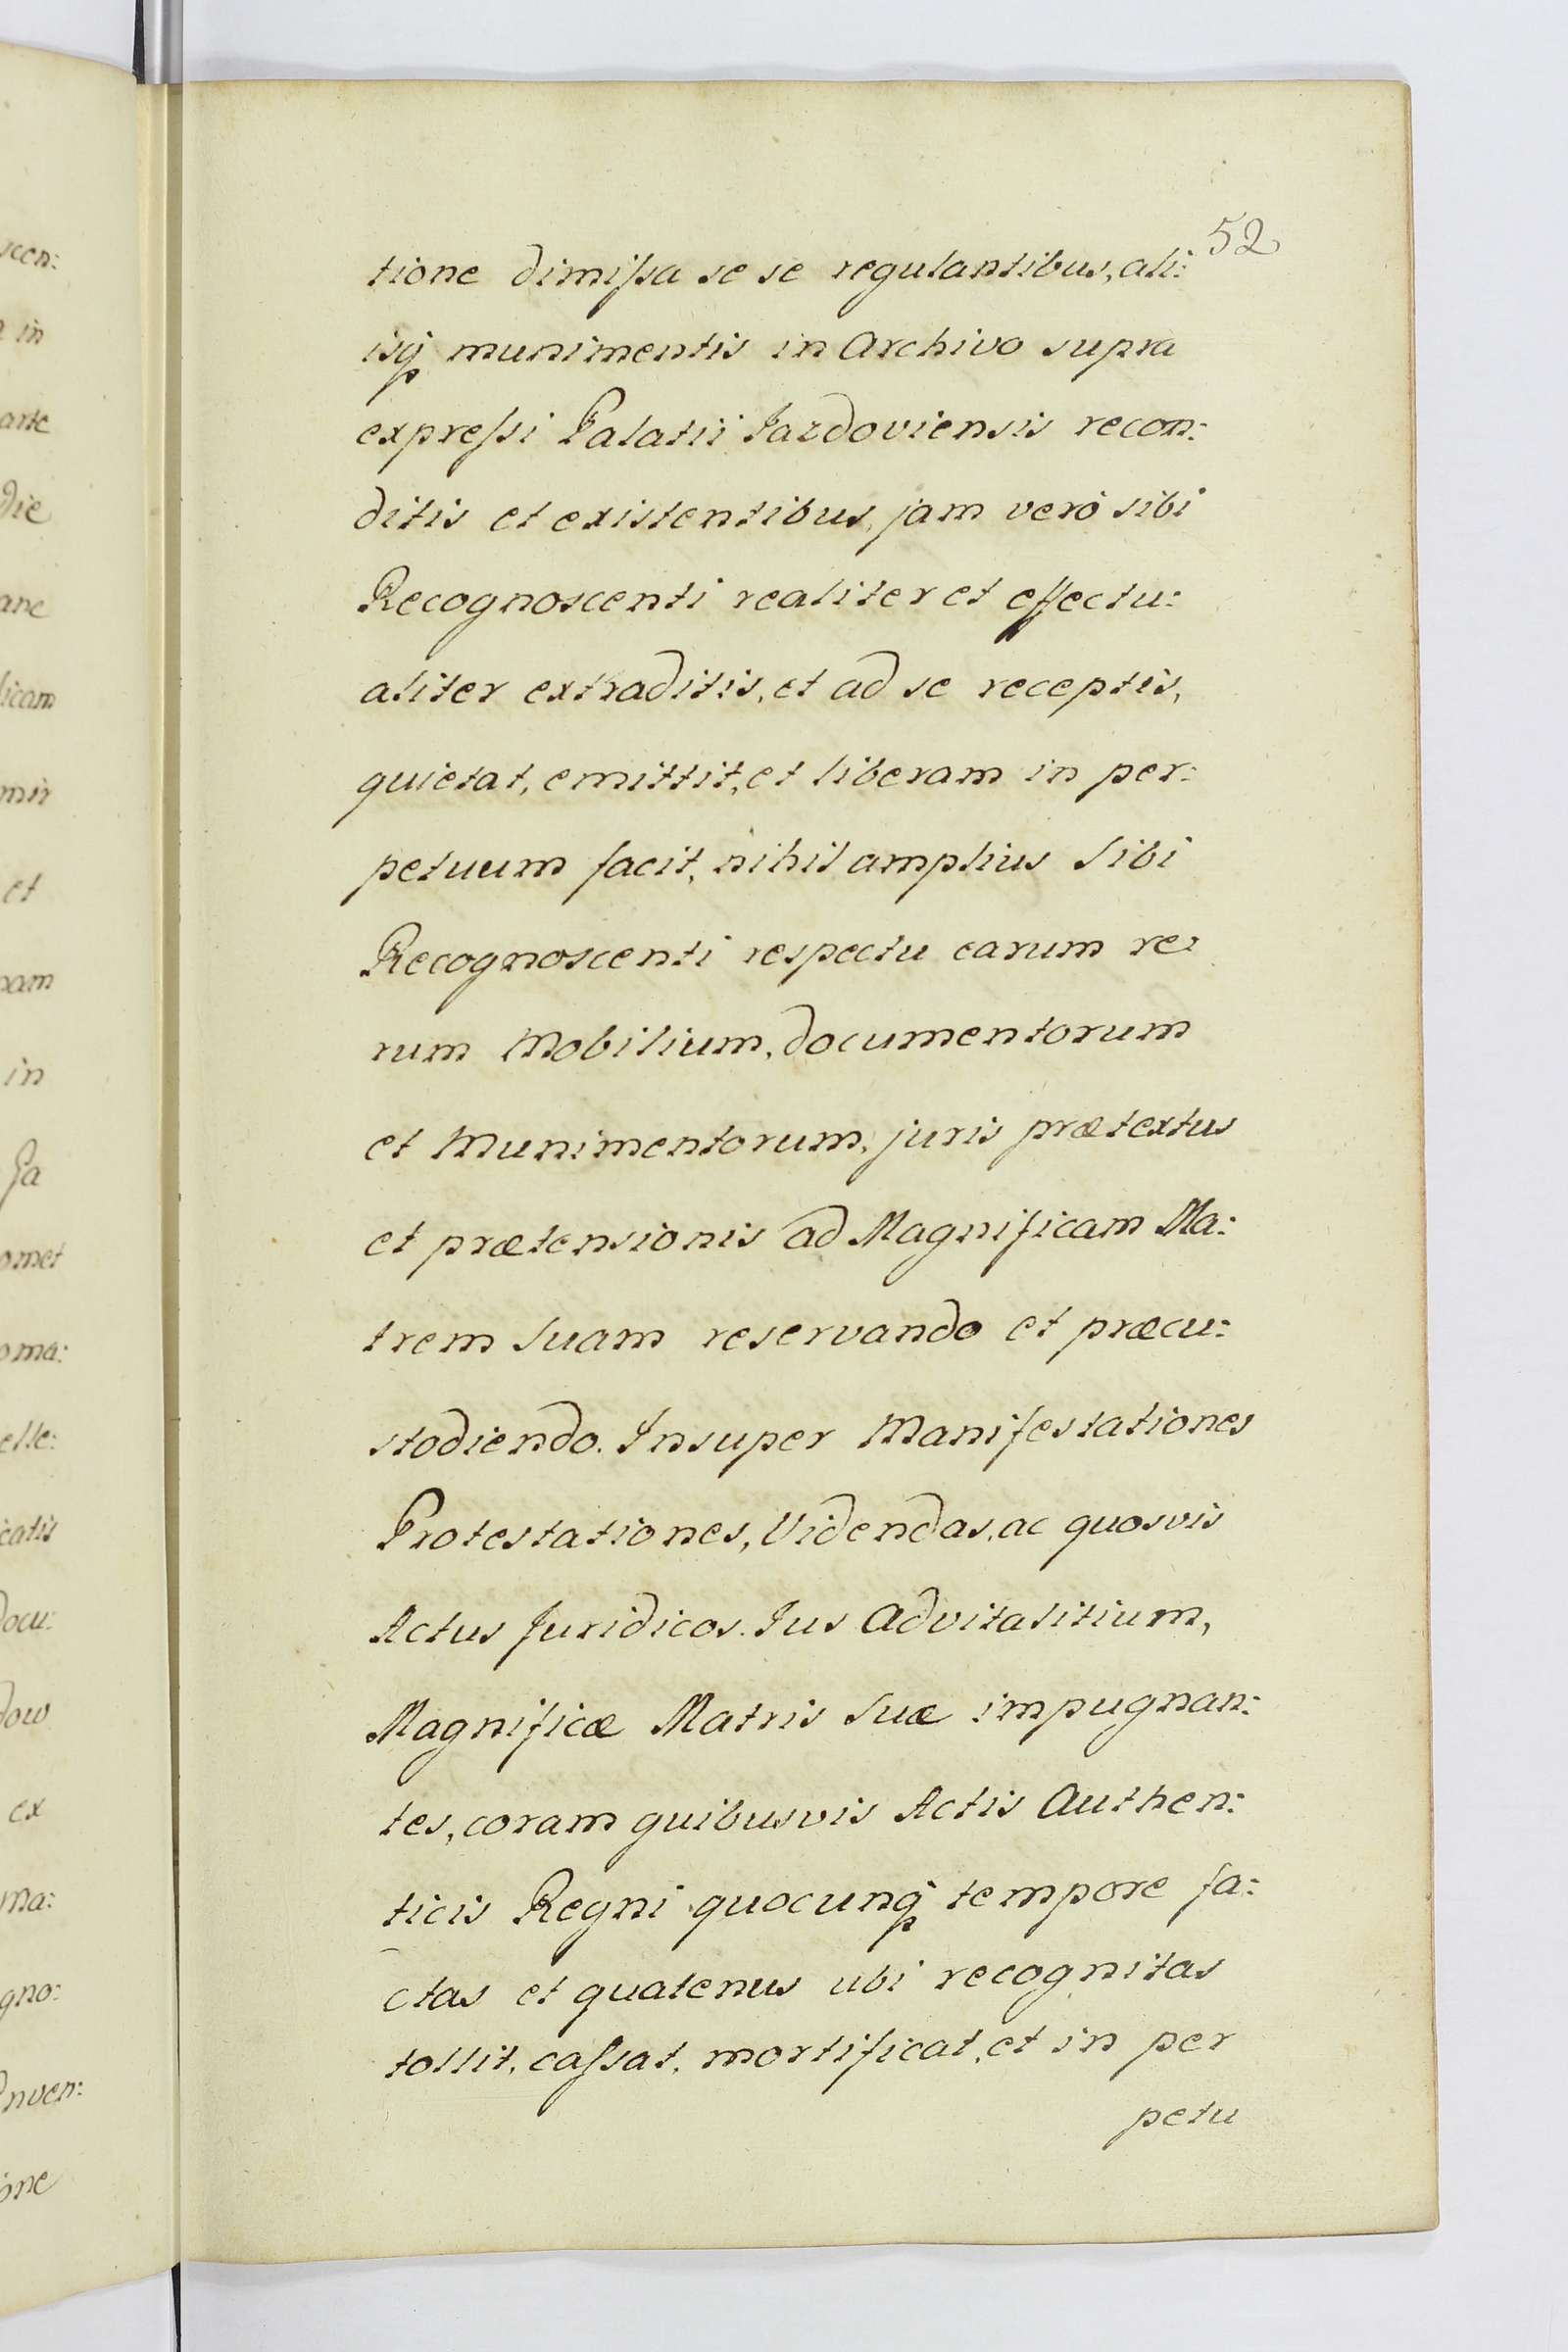 52
tione dimiſsa se se regulantibus, ali:
isq́ munimentis in Archivo supra
expreſsi Palatii Jazdoviensis recon:
ditis et existentibus, jam verò sibi
Recognoscenti realiter et effectu:
aliter extraditis, et ad se receptis,
quietat, emittit, et liberam in per:
petuum facit, nihil amplius Sibi
Recognoscenti respectu earum re:
rum Mobilium, documentorum
et Munimentorum, juris prætextus
et prætensionis ad Magnificam Ma:
trem Suam reservando et præcu:
stodiendo. Insuper Manifestationes
Protestationes, Videndas, ac quosvis
Actus Juridicos. Jus Advitalitium,
Magnificæ Matris Suæ impugnan:
tes, coram quibusvis Actis Authen:
ticis Regni quocunq́ tempore fa:
ctas et quatenus ubi recognitas
tollit, caſsat, mortificat, et in per
petu